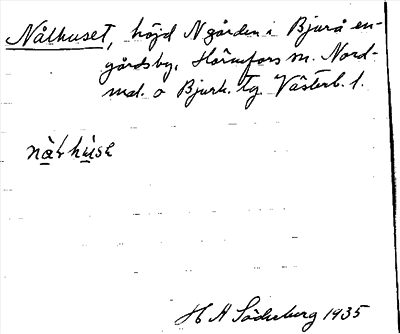 Nålhuset, höjd N gården i Bjurå en-
gårdsby, Hörnefors sn. Nord-
mal. o Bjurh. tg. Västerb. l.
nålhuse
H A Söderberg 1935